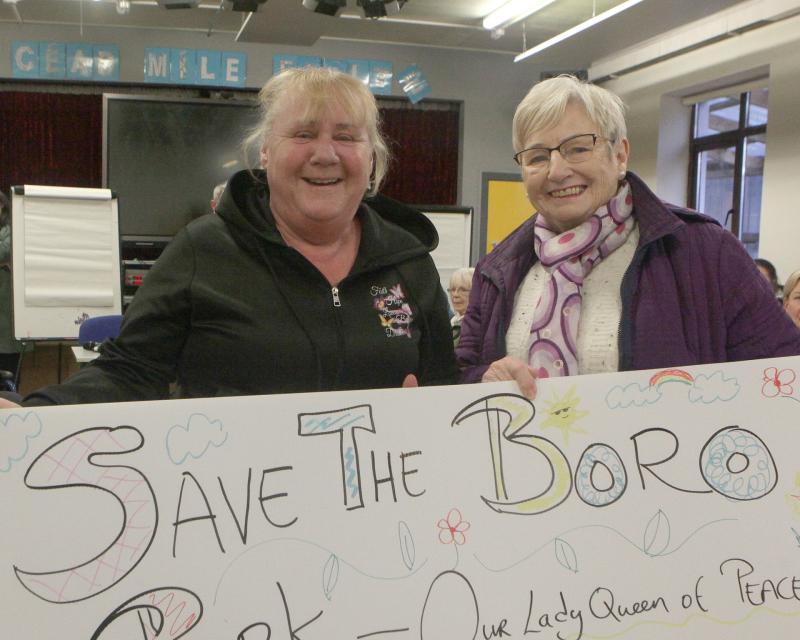 CEAD MILE FAILTE
SAVE THE BORO
PARK – OUR LADY QUEEN OF PEACE